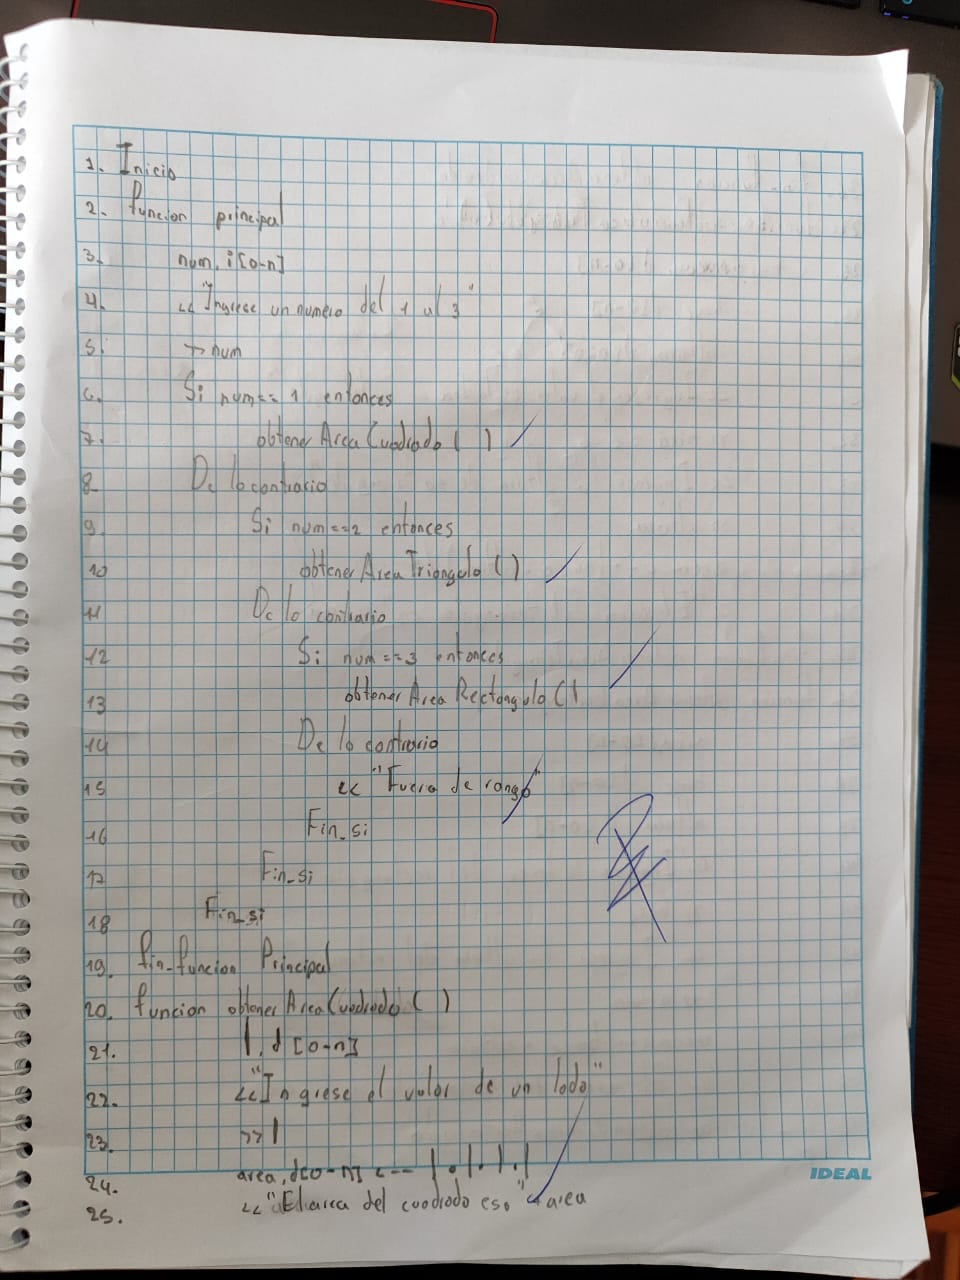 1. Inicio
2. funcion principal
3. num, i [0-n]
4. << "Ingrese un numero del 1 al 3"
5. >> num
6. Si num == 1 entonces
7. obtener Area Cuadrado ( )
8. De lo contrario
9. Si num == 2 entonces
10 obtener Area Triangulo ( )
11 De lo contrario
12 Si num == 3 entonces
13 obtener Area Rectangulo ( )
14 De lo contrario
15 << "Fuera de rango"
16 Fin_si
17 Fin_si
18 Fin_si
19. fin_funcion Principal
20. funcion obtener Area Cuadrado ( )
21. l, d [0-n]
22. << "Ingrese el valor de un lado"
23. >> l
24. area, d[0-n] <-- l . l . l . l
25. << "El area del cuadrado es." << area
IDEAL